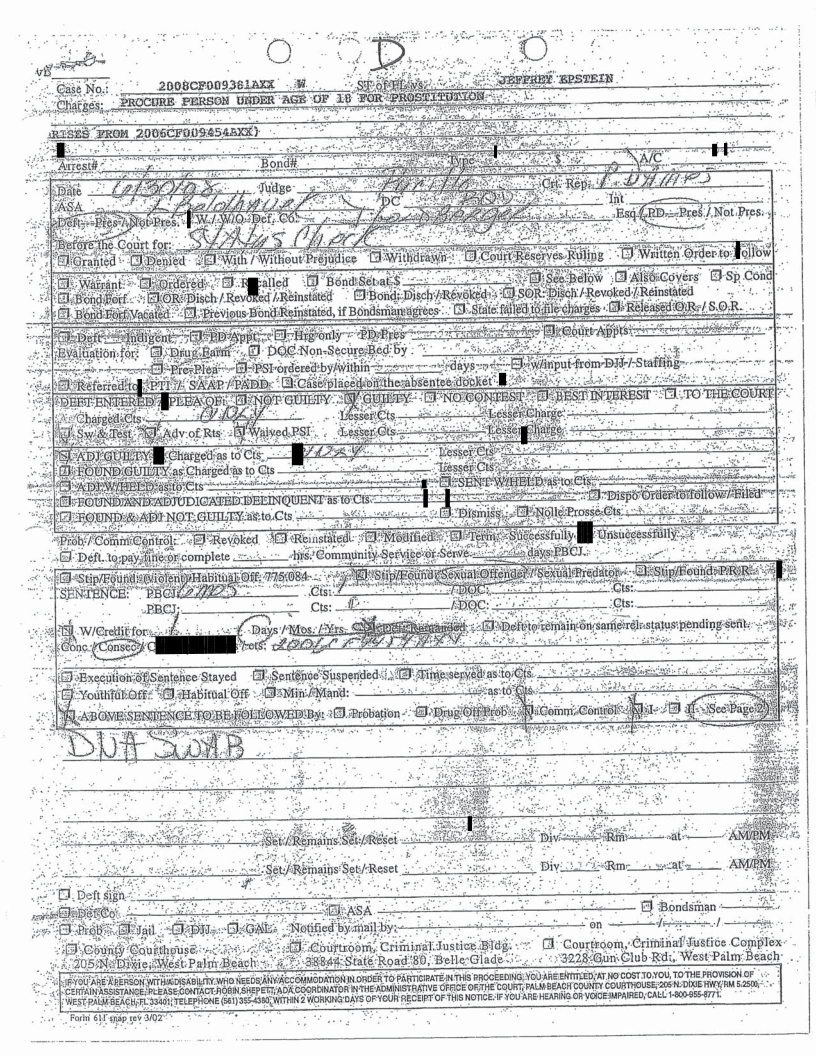 D
VB
Case No.: 2008CF009381AXX W ST of FL vs. JEFFREY EPSTEIN
Charges: PROCURE PERSON UNDER AGE OF 18 FOR PROSTITUTION
RISES FROM 2006CF009454AXX}
Arrest# Bond# Type $ A/C
Date 6/30/08 Judge DC Crt. Rep.
ASA Int
Deft. Pres / Not Pres. W / W/O Def. Co. Esq / PD Pres / Not Pres.
Before the Court for: Status Check
Granted Denied With / Without Prejudice Withdrawn Court Reserves Ruling Written Order to ollow
Warrant Ordered R alled Bond Set at $ See Below Also Covers Sp Cond
Bond Forf. OR: Disch / Revoked / Reinstated Bond: Disch / Revoked SOR: Disch / Revoked / Reinstated
Bond Forf Vacated Previous Bond Reinstated, if Bondsman agrees State failed to file charges Released O.R. / S.O.R.
Deft. Indigent PD Appt. Hrg only PD Pres Court Appts
Evaluation for: Drug Farm DOC Non-Secure Bed by
Pre-Plea PSI ordered by/within days w/input from DJJ / Staffing
Referred to PTI / SAAP / PADD Case placed on the absentee docket
DEFT ENTERED PLEA OF: NOT GUILTY GUILTY NO CONTEST BEST INTEREST TO THE COURT
Charged Cts Lesser Cts Lesser Charge
Sw & Test Adv of Rts Waived PSI Lesser Cts Lesser harge
ADJ GUILTY Charged as to Cts Lesser Cts
FOUND GUILTY as Charged as to Cts Lesser Cts
ADJ W/HELD as to Cts SENT W/HELD as to Cts
FOUND AND ADJUDICATED DELINQUENT as to Cts Dispo Order to follow / Filed
FOUND & ADJ NOT GUILTY as to Cts Dismiss Nolle Prosse Cts
Prob / Comm Control: Revoked Reinstated Modified Term Successfully Unsuccessfully
Deft. to pay fine or complete hrs. Community Service or Serve days PBCJ
Stip/Found: (violent) Habitual Off. 775.084 Stip/Found: Sexual Offender / Sexual Predator Stip/Found: P.R.R.
SENTENCE: PBCJ: 6 mos Cts: / DOC: Cts:
PBCJ: Cts: / DOC: Cts:
W/Credit for 1 Days / Mos. / Yrs. Deft Remanded Deft to remain on same rel. status pending sent.
Conc. / Consec / C / cts: 2006CF9454AXX
Execution of Sentence Stayed Sentence Suspended Time served as to Cts
Youthful Off Habitual Off Min / Mand: as to Cts
ABOVE SENTENCE TO BE FOLLOWED By: Probation Drug Off Prob Comm. Control I II (See Page 2)
DNA SWAB
Set / Remains Set / Reset Div Rm at AM/PM
Set / Remains Set / Reset Div Rm at AM/PM
Deft sign
Def. Co ASA Bondsman
Prob Jail DJJ GAL Notified by mail by: on / /
County Courthouse Courtroom, Criminal Justice Bldg. Courtroom, Criminal Justice Complex
205 N. Dixie, West Palm Beach 38844 State Road 80, Belle Glade 3228 Gun Club Rd., West Palm Beach
IF YOU ARE A PERSON WITH A DISABILITY WHO NEEDS ANY ACCOMMODATION IN ORDER TO PARTICIPATE IN THIS PROCEEDING, YOU ARE ENTITLED, AT NO COST TO YOU, TO THE PROVISION OF
CERTAIN ASSISTANCE. PLEASE CONTACT ROBIN SHEPETT, ADA COORDINATOR IN THE ADMINISTRATIVE OFFICE OF THE COURT, PALM BEACH COUNTY COURTHOUSE, 205 N. DIXIE HWY, RM 5.2500,
WEST PALM BEACH, FL 33401; TELEPHONE (561) 355-4380, WITHIN 2 WORKING DAYS OF YOUR RECEIPT OF THIS NOTICE. IF YOU ARE HEARING OR VOICE IMPAIRED, CALL 1-800-955-8771.
Form 611 snap rev 3/02